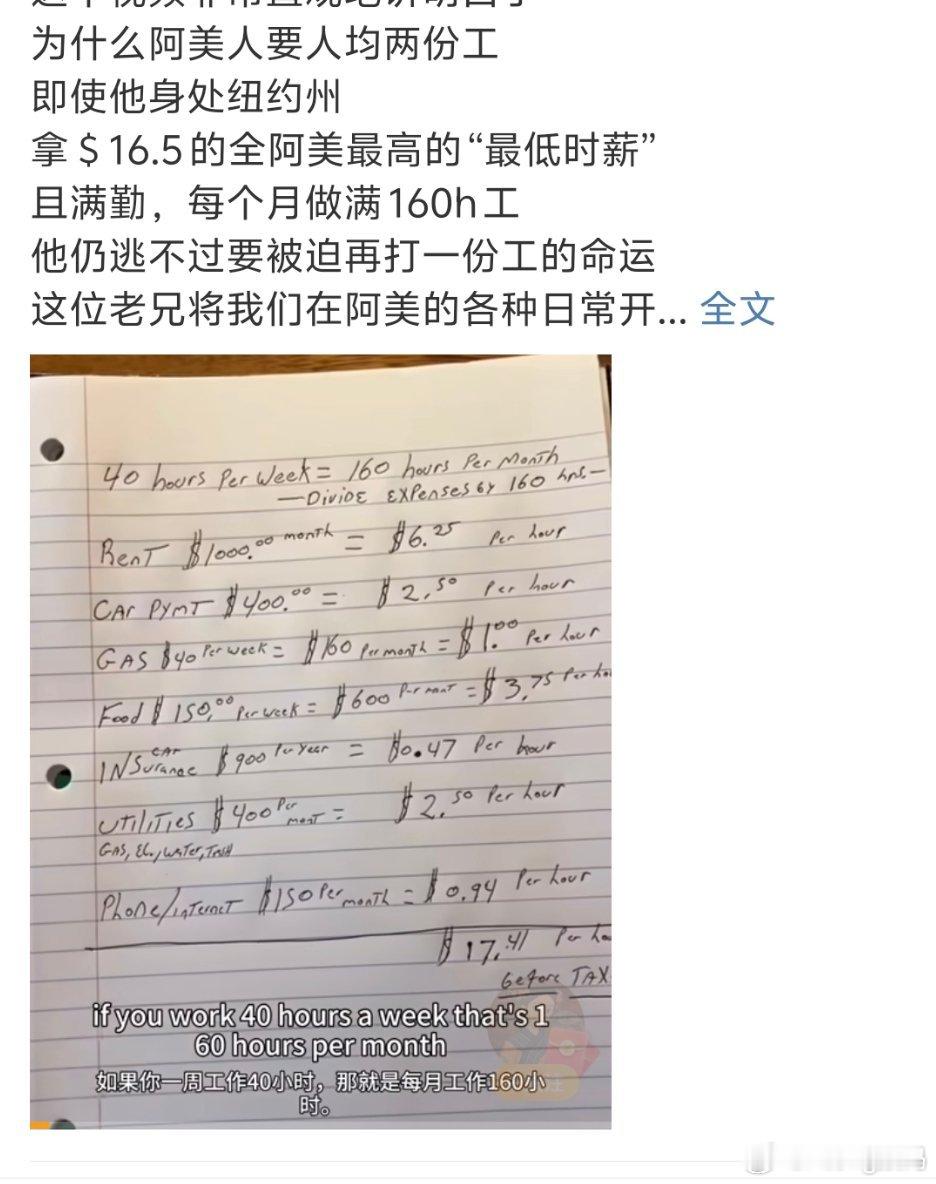 为什么阿美人要人均两份工
即使他身处纽约州
拿$16.5的全阿美最高的“最低时薪”
且满勤，每个月做满160h工
他仍逃不过要被迫再打一份工的命运
这位老兄将我们在阿美的各种日常开... 全文
40 hours Per Week = 160 hours Per Month
—Divide Expenses by 160 hrs—
Rent $1000.00 month = $6.25 Per hour
CAr PymT $400.00 = $2.50 Per hour
GAS $40 Per week = $160 Per month = $1.00 Per hour
Food $150.00 Per week = $600 Per mont = $3.75 Per ho
CAr
INSurance $900 Per Year = $0.47 Per hour
UTiliTies $400 Per mont = $2.50 Per hour
GAS, El., WATer, TrsH
Phone/internet $150 Per month = $0.94 Per hour
$17.41 Per ho
before TAX
if you work 40 hours a week that's 1
60 hours per month
如果你一周工作40小时，那就是每月工作160小
时。